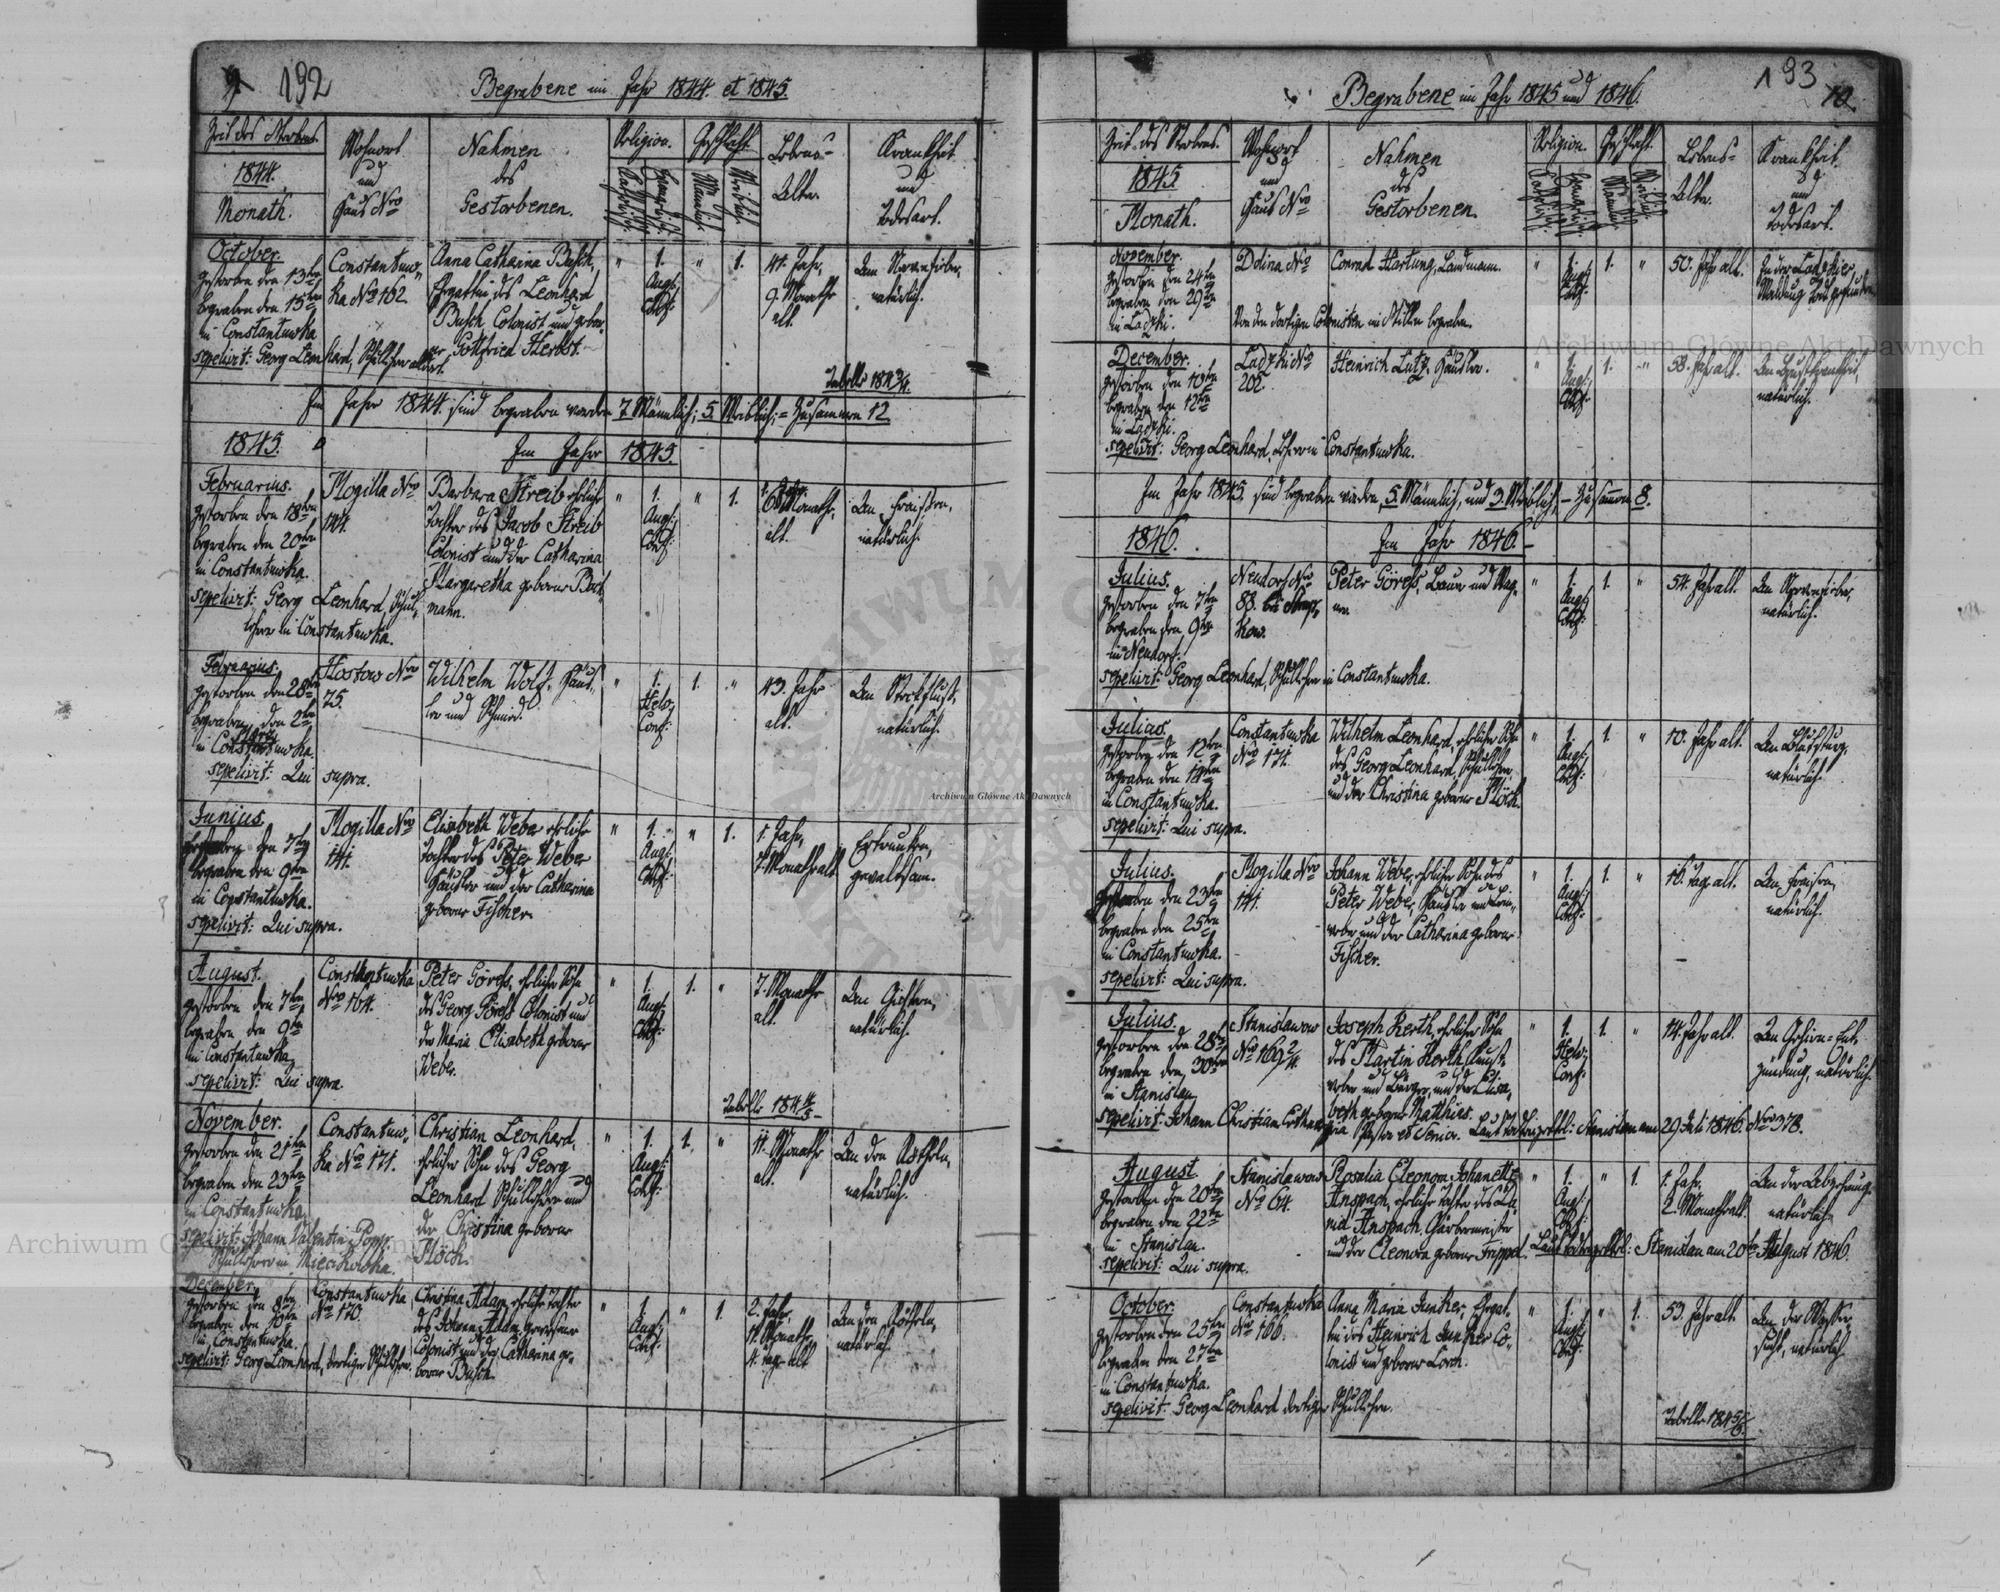 192
Begrabene im Jahr 1844. et 1845.
Zeit des Sterbens.
1844.
Monath.
Wohnort
und
Haus Nro
Nahmen
des
Gestorbenen.
Religion.
Katholisch
Evangelisch
Geschlecht
Männlich
Weiblich
Lebens-
Alter.
Krankheit
und
Todesart.
October.
gestorben den 13ten
begraben den 15ten
in Constantuwka
sepelivit: Georg Leonhard, Schullehrer alldort.
Constantuw-
ka Nro 162
Anna Catharina Busch,
Ehegattin des Leonhard
Busch Colonist und gebor-
ner Gottfried Herbst.
" 1. " 1.
Augs:
Conf:
41. Jahr,
9. Monath
alt.
Am Nervenfieber,
natürlich.
Tabelle 1843/4.
Im Jahr 1844. sind begraben worden 7 Männlich; 5. Weiblich; = Zusammen 12
1845.
Im Jahr 1845.
Februarius.
gestorben den 18ten
begraben den 20ten
in Constantuwka.
sepelivit: Georg Leonhard, Schul-
lehrer in Constantuwka.
Mogilla Nro
144.
Barbara Streib eheliche
Tochter des Jacob Streib
Colonist und der Catharina
Margaretha geborner Bort-
mann.
" 1. " 1.
Augs:
Conf:
6 Monath,
alt.
Am Fraisen,
natürlich.
Februarius.
gestorben den 28ten
begraben den 2ten
März
in Constantuwka.
sepelivit: Qui supra.
Hostow Nro
75.
Wilhelm Wolf, Häus-
ler und Schmied.
" 1. 1. "
Helv:
Conf:
43. Jahr
alt.
Am Stockfluß,
natürlich.
Junius
gestorben den 7ten
begraben den 9ten
in Constantuwka.
sepelivit: Qui supra.
Mogilla Nro
141.
Elisabeth Weber eheliche
Tochter des Peter Weber
Häusler und der Catharina
geborner Fischer.
" 1. " 1.
Augs:
Conf:
1. Jahr,
7. Monath alt
Ertrunken,
gewaltsam.
August.
gestorben den 7ten
begraben den 9ten
in Constantuwka
sepelivit: Qui supra
Constantuwka
Nro 164.
Peter Görgs, ehelicher Sohn
des Georg Görgs Colonist und
der Maria Elisabeth geborner
Weber.
" 1. 1. "
Augs:
Conf:
7. Monath
alt.
natürlich.
Tabelle 1844/5
November.
gestorben den 21ten
begraben den 23ten
in Constantuwka
sepelivit: Johann Valentin
Schullehrer in Mieczikowka.
Constantuw-
ka Nro 171.
Christian Leonhard,
ehelicher Sohn des Georg
Leonhard Schullehrer und
der Christina geborner
Höch.
" 1. 1. "
Augs:
Conf:
11. Monath
alt.
An den Rötheln,
natürlich.
December.
gestorben den 8ten
begraben den 10ten
in Constantuwka.
sepelivit: Georg Leonhard, dortiger Schullehrer.
Constantuwka
Nro 170.
Christina Adam, eheliche Tochter
des Johann Adam gewesener
Colonist und der Catharina ge-
borner Busch.
" 1. " 1.
Augs:
Conf:
2. Jahr,
11. Monath,
4. Tag alt
An den Rötheln,
natürlich.
193
12
Begrabene im Jahr 1845 und 1846.
Zeit des Sterbens.
1845.
Monath.
Wohnort
und
Haus Nro
Nahmen
des
Gestorbenen.
Religion.
Katholisch
Evangelisch
Geschlecht.
Männlich
Weiblich
Lebens-
Alter.
Krankheit
und
Todesart.
November.
gestorben den 24ten
begraben den 29ten
in Ladzki.
Dolina Nro
Conrad Hartung, Landmann.
Von den dortigen Colonisten im Stillen begraben.
" 1. 1. "
Augs:
Conf:
50. Jahr alt.
In der Ladzkier
Waldung todt gefunden
December.
gestorben den 10ten
begraben den 12ten
in Ladzki.
sepelivit: Georg Leonhard, Lehrer in Constantuwka.
Ladzki Nro
202.
Heinrich Lutz, Häusler.
" 1. 1. "
Augs:
Conf:
58. Jahr alt.
An Brustkrankheit,
natürlich.
Im Jahr 1845. sind begraben worden, 5. Männlich, und 3. Weiblich, = Zusammen 8.
1846.
Im Jahr 1846
Julius.
gestorben den 7ten
begraben den 9ten
in Neudorf.
sepelivit: Georg Leonhard, Schullehrer in Constantuwka.
Neudorf Nro
88.
Peter Görgs, Bauer und Wag-
ner.
" 1. 1. "
Augs:
Conf:
54. Jahr alt.
Am Nervenfieber,
natürlich.
Julius.
gestorben den 12ten
begraben den 14ten
in Constantuwka.
sepelivit: Qui supra.
Constantuwka
Nro 171.
Wilhelm Leonhard, ehelicher Sohn
des Georg Leonhard, Schullehrer
und der Christina geborner Höch.
" 1. 1. "
Augs:
Conf:
10. Jahr alt.
Am Blutsturz,
natürlich.
Julius.
gestorben den 23ten
begraben den 25ten
in Constantuwka.
sepelivit: Qui supra.
Mogilla Nro
141.
Johann Weber, ehelicher Sohn des
Peter Weber, Häusler und Lein-
weber und der Catharina geborner
Fischer.
" 1. 1. "
Augs:
Conf:
16. Tag alt.
Am Fraisen,
natürlich.
Julius.
gestorben den 28ten
begraben den 30ten
in Stanislau
sepelivit: Johann Christian
Pastor et Senior. Laut Todtenzettel: Stanislau am 29 Juli 1846. Nro 378.
Stanislawow
Nro 169 2/4.
Joseph Kerth, ehelicher Sohn
des Martin Kerth, Kunst-
weber und Bürger, und der Elisa-
beth geborner Matthias.
" 1. 1. "
Helv:
Conf:
14. Jahr alt.
An Gehirn-Ent-
zündung, natürlich.
August
gestorben den 20ten
begraben den 22ten
in Stanislau.
sepelivit: Qui supra.
Stanislawow
Nro 64.
Rosalia Eleonora Johanette
Anspach, eheliche Tochter des Da-
niel Anspach Gärbermeister
und der Eleonora geborner Frippel. Laut Todtenzettel: Stanislau am 20ten August 1846.
" 1. " 1.
Augs:
Conf:
1. Jahr.
2. Monath alt.
An der Abzehrung
natürlich
October.
gestorben den 25ten
begraben den 27ten
in Constantuwka.
sepelivit: Georg Leonhard dortiger Schullehrer.
Constantuwka
Nro 166.
Anna Maria Junker, Ehegat-
tin des Heinrich Junker Co-
lonist und geborner Lorch.
" 1. " 1.
Augs:
Conf:
53. Jahr alt.
An der Wasser-
sucht, natürlich
Tabelle 1845/6.
Archiwum Główne Akt Dawnych
Archiwum Główne Akt Dawnych